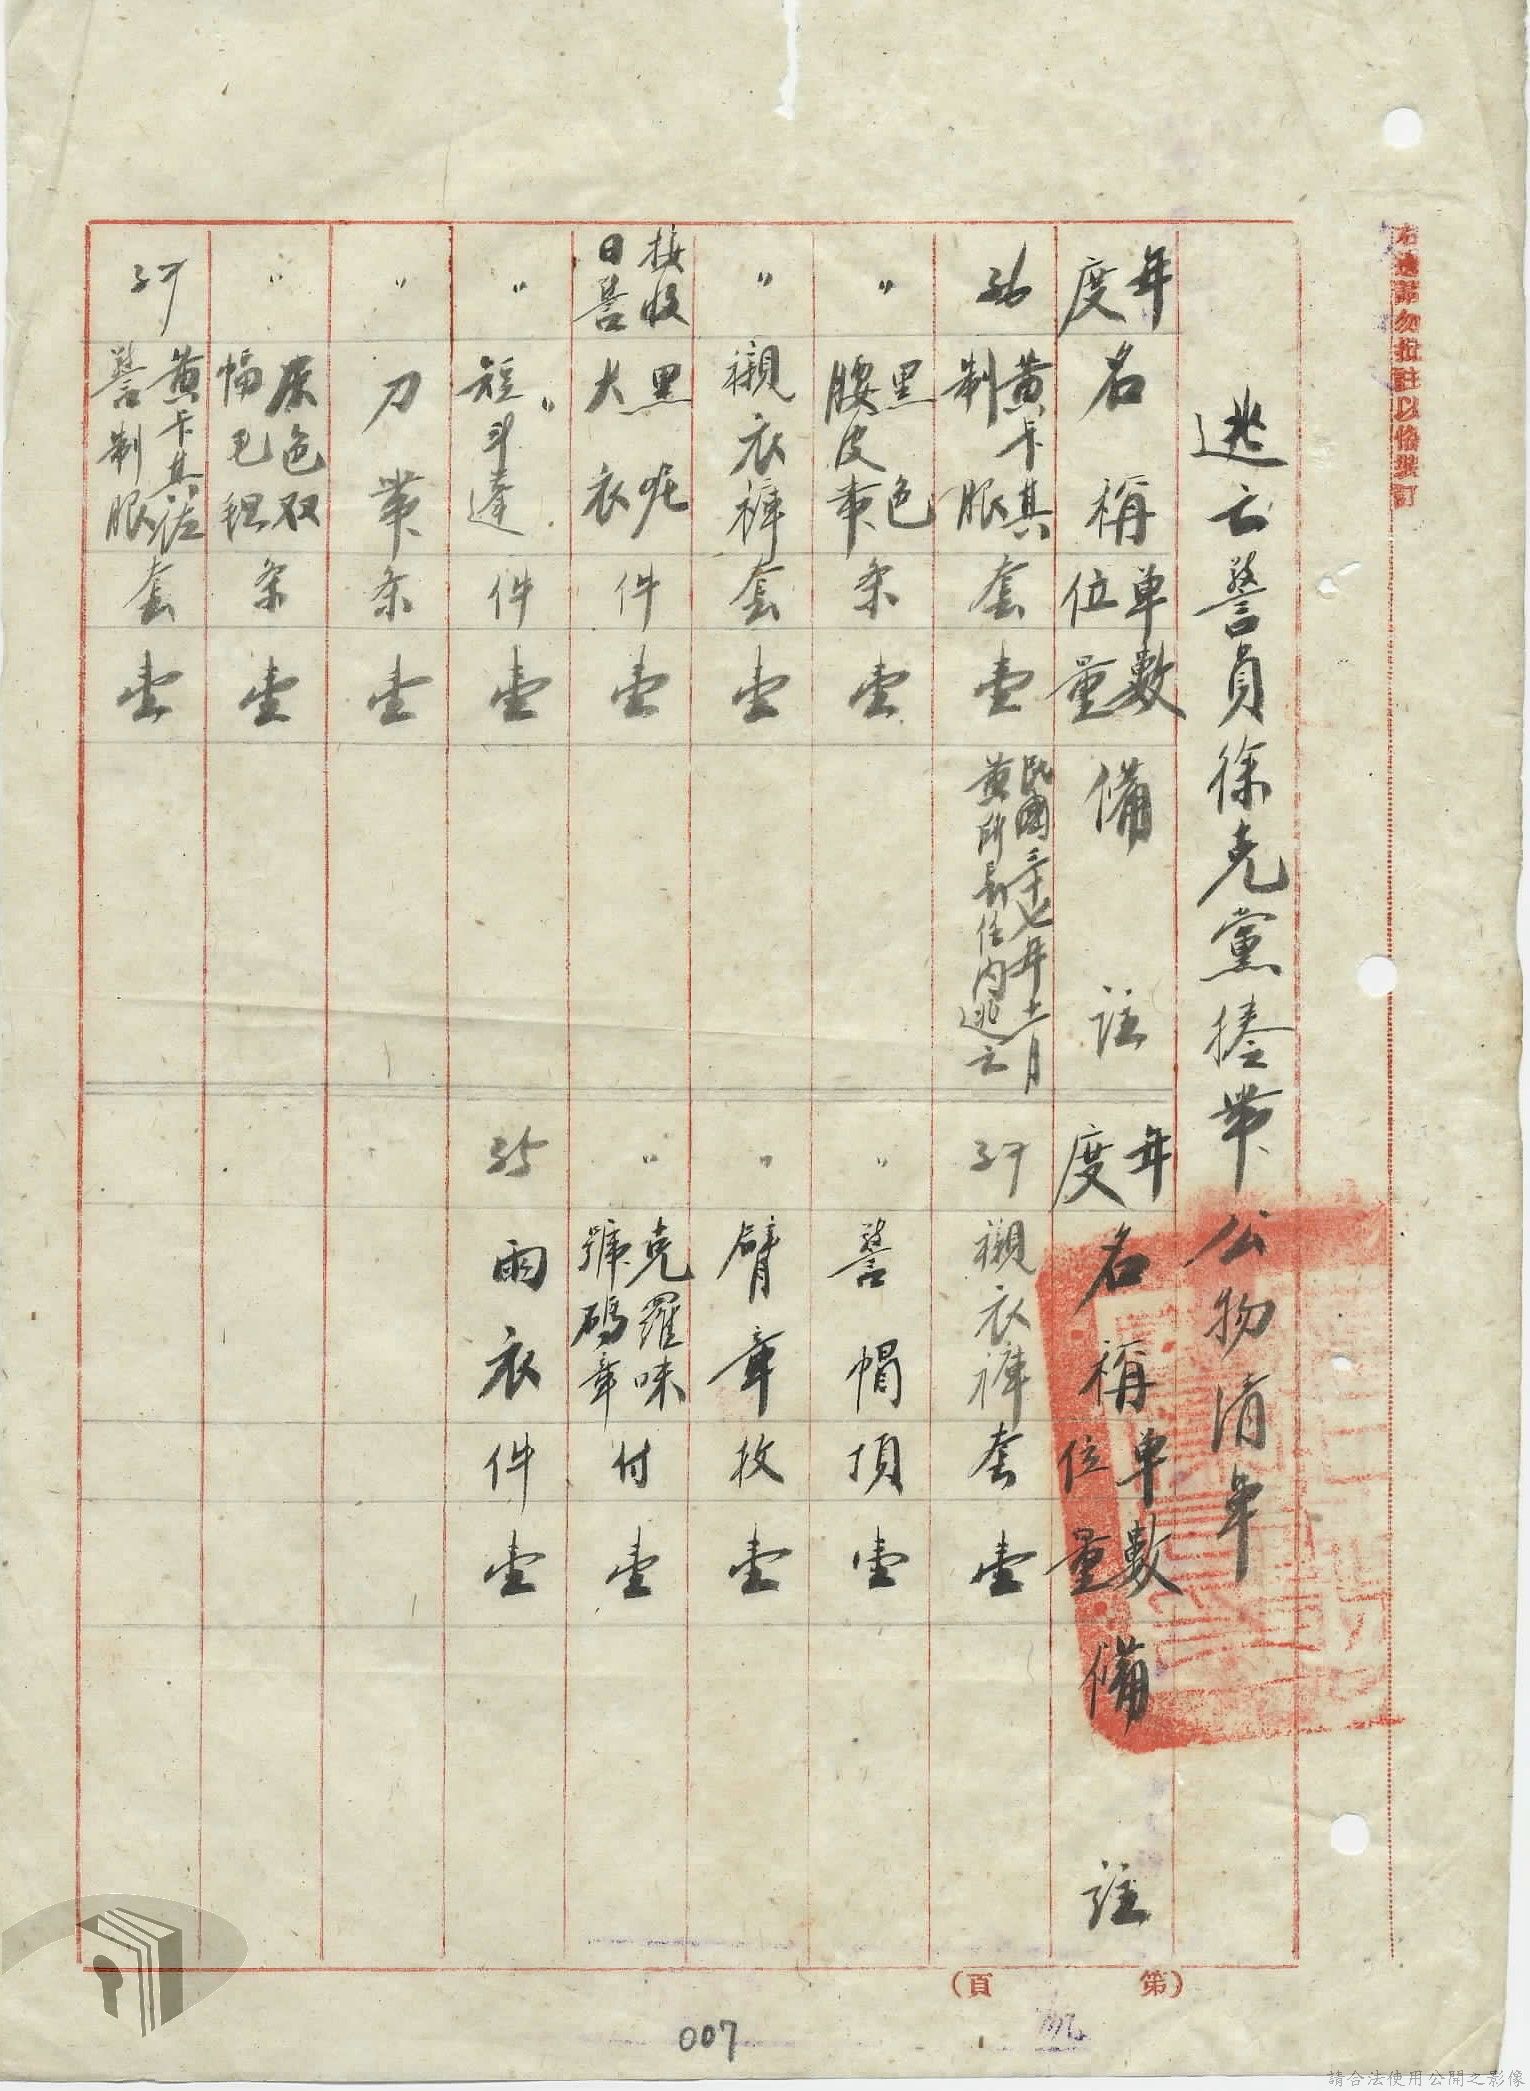 右邊請勿批註以俻裝訂
逃亡警員徐克黨捲帶公物清单
年度 名稱 单位 數量 備註 年度 名稱 单位 數量 備註
36 黃卡其制服 套 壹 民國三十七年十一月黃所長任内逃亡 37 襯衣裤 套 壹
〃 黑色腰皮帶 条 壹 〃 警帽 頂 壹
〃 襯衣裤 套 壹 〃 臂章 枚 壹
接收日警 黑呢大衣 件 壹 〃 克羅味號碼章 付 壹
〃 短〃斗逢 件 壹 35 雨衣 件 壹
〃 刀帶 条 壹
〃 灰色双幅毛毯 条 壹
37 黃卡其警制服 套 壹
第 頁
007
請合法使用公開之影像